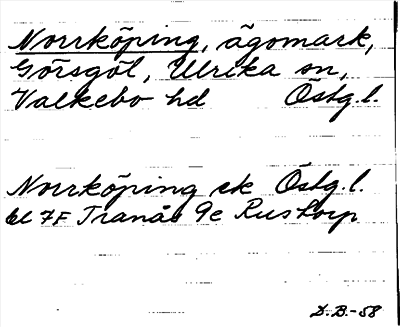 Norrköping, ägomark,
Görsgöl, Ulrika sn,
Valkebo hd Östg.l.
Norrköping ek Östg.l.
bl 7F Tranås 9e Rustorp
D.B.-58